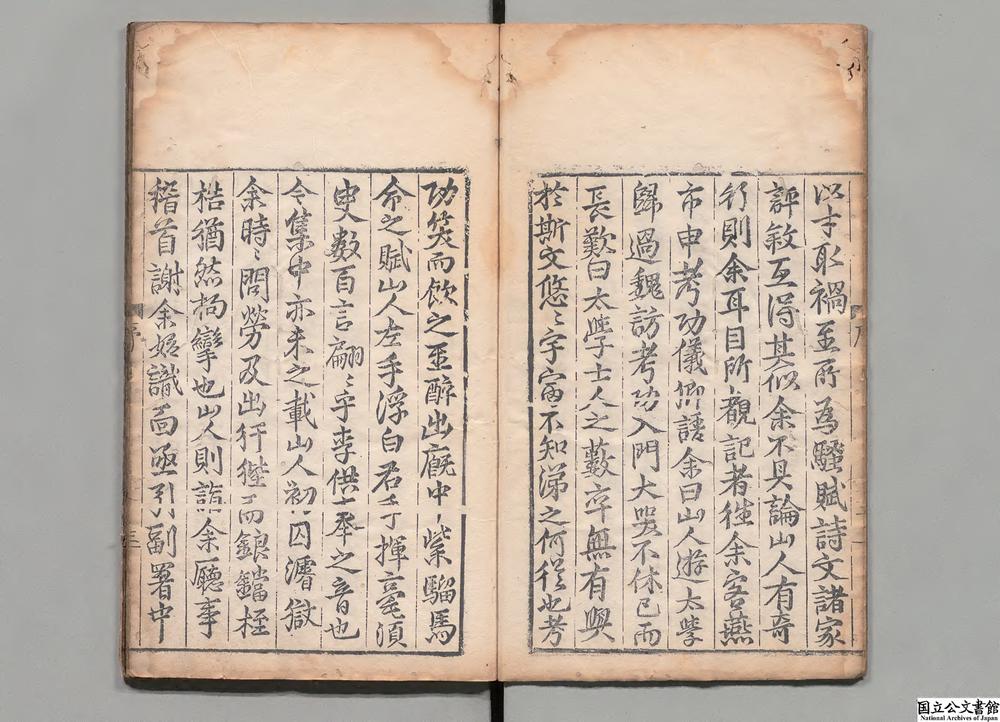 以才取禍至所為騷賦詩文諸家
評敏互得其似余不具論山人有奇
行則余耳目所覩記者徃余客燕
市申考功儀卿語余曰山人遊太學
歸過魏訪考功入門大哭不休已而
長歎曰太學士人之藪卒無有與
於斯文悠〻宇宙不知涕之何從也考
功笑而飲之至醉出廐中紫騮馬
命之賦山人左手浮白右手揮毫須
臾數百言翩〻乎李供奉之音也
今集中亦未之載山人初囚濬獄
余時〻問勞及出犴狴而鋃鐺桎
梏猶然拘攣也山人則詣余廳事
稽首謝余始識面亟引副署中
序
三
国立公文書館
National Archives of Japan